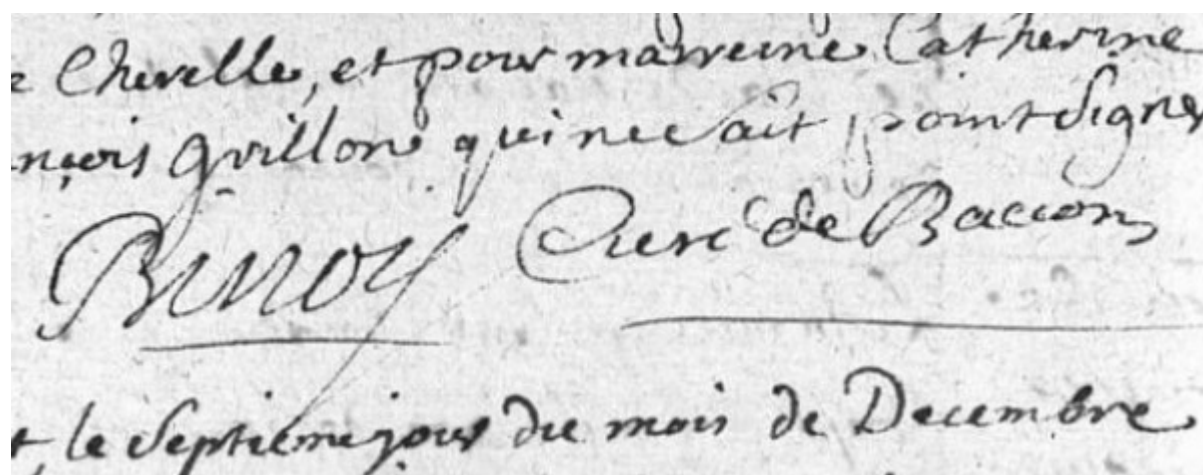 e Chevelle, et pour marreine Catherine
nçois Grillon qui ne sait point signer
Binoy Curé de Baccon
t le septieme jour du mois de Decembre